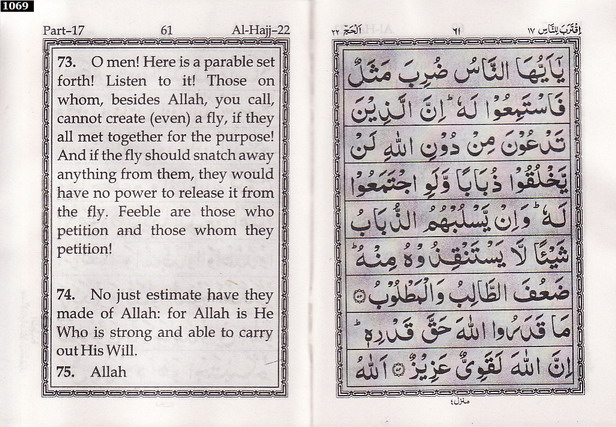 1069
Part–17 61 Al-Hajj–22
73. O men! Here is a parable set
forth! Listen to it! Those on
whom, besides Allah, you call,
cannot create (even) a fly, if they
all met together for the purpose!
And if the fly should snatch away
anything from them, they would
have no power to release it from
the fly. Feeble are those who
petition and those whom they
petition!
74. No just estimate have they
made of Allah: for Allah is He
Who is strong and able to carry
out His Will.
75. Allah
اِقْتَرَبَ لِلنَّاسِ ١٧ ٦١ اَلْحَجّ ٢٢
يٰۤاَيُّهَا النَّاسُ ضُرِبَ مَثَلٌ
فَاسْتَمِعُوْا لَهٗ ؕ اِنَّ الَّذِيْنَ
تَدْعُوْنَ مِنْ دُوْنِ اللّٰهِ لَنْ
يَّخْلُقُوْا ذُبَابًا وَّلَوِ اجْتَمَعُوْا
لَهٗ ؕ وَاِنْ يَّسْلُبْهُمُ الذُّبَابُ
شَيْـًٔا لَّا يَسْتَنْقِذُوْهُ مِنْهُ ؕ
ضَعُفَ الطَّالِبُ وَالْمَطْلُوْبُ ۝٧٣
مَا قَدَرُوا اللّٰهَ حَقَّ قَدْرِهٖ ؕ
اِنَّ اللّٰهَ لَقَوِىٌّ عَزِيْزٌ ۝٧٤ اَللّٰهُ
منزل ٤